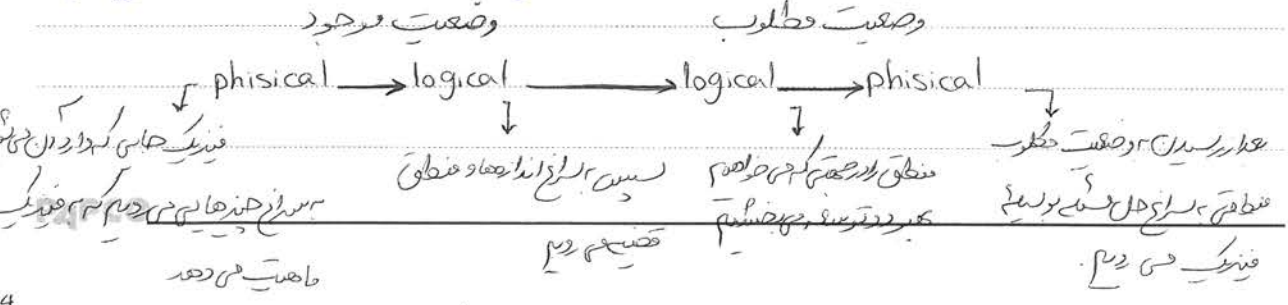 وضعیت مطلوب وضعیت موجود
phisical → logical → logical → phisical
فیزیک جایی که وارد آن می‌شو
به سراغ چیزهایی می رویم که به فیزیک
ماهیت می دهد
سپس به سراغ اندازه‌ها و منطق
قضیه می رویم
منطق را در جهتی که می خواهیم
بهبود و توسعه می بخشیم
بعد از رسیدن به وضعیت مطلوب
منطقی به سراغ حل مسئله بوسیله
فیزیک می رویم.
4